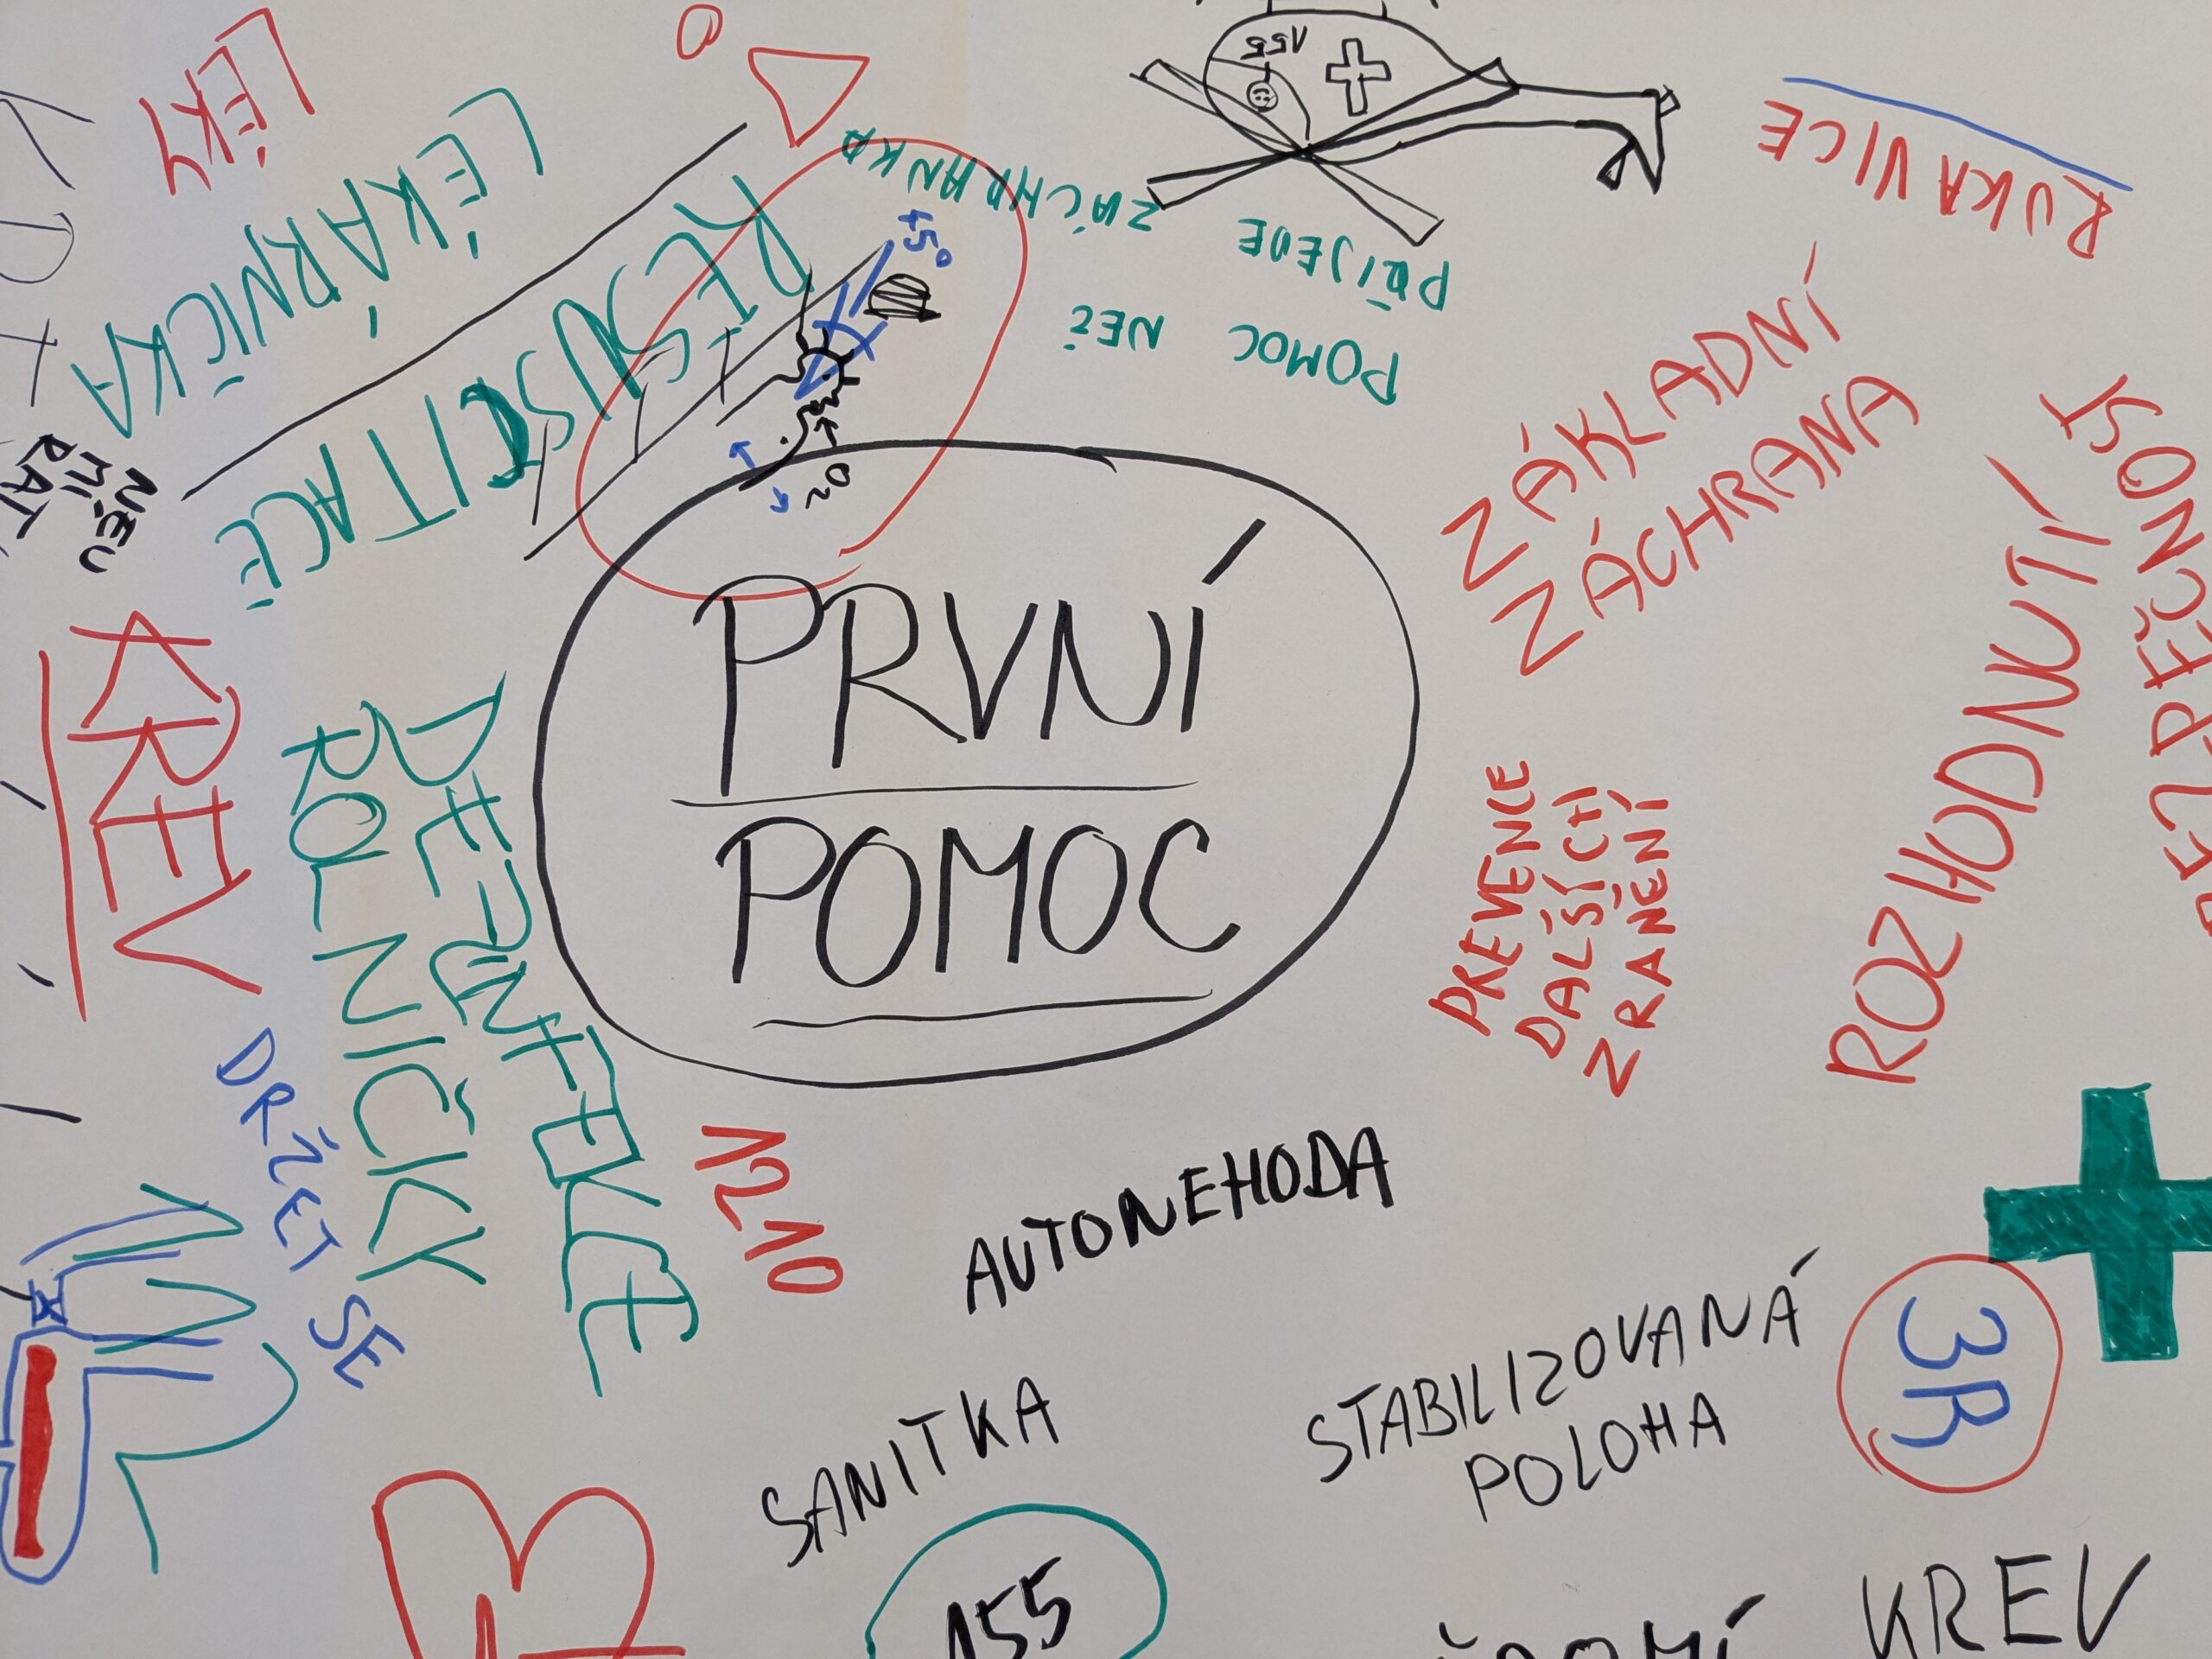 PRVNÍ
POMOC
LÉKY
LÉKÁRNIČKA
RESUSCITACE
NEU
MÍ
RAT
KREV
DEZINFEKCE
ROLNIČKY
DRŽET SE
155
POMOC NEŽ
PŘIJEDE
ZÁCHRANKA
45°
RUKAVICE
ZÁKLADNÍ
ZÁCHRANA
ROZHODNUTÍ
PREVENCE
DALŠÍCH
ZRANĚNÍ
AUTONEHODA
STABILIZOVANÁ
POLOHA
3R
SANITKA
155
KREV